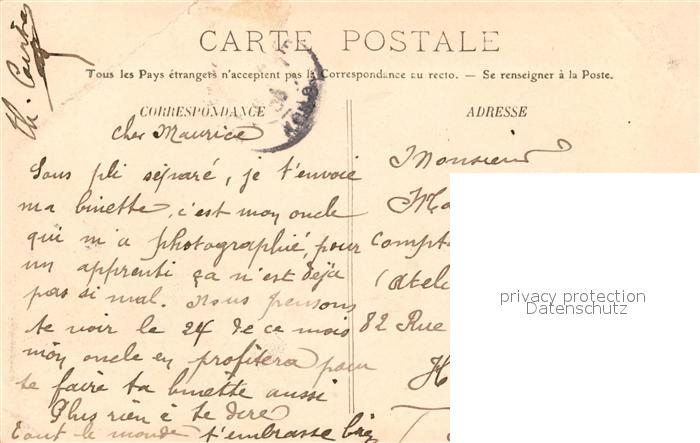 CARTE POSTALE
Tous les Pays étrangers n'acceptent pas la Correspondance au recto. — Se renseigner à la Poste.
CORRESPONDANCE
cher Maurice
Sous pli séparé, je t'envoie
ma binette, c'est mon oncle
qui m'a photographié, pour
un apprenti ça n'est déjà
pas si mal. Nous pensons
te voir le 24 de ce mois
mon oncle en profitera pour
te faire ta binette aussi
Plus rien à te dire
Tout le monde t'embrasse
ADRESSE
Monsieur
82 Rue
privacy protection
Datenschutz